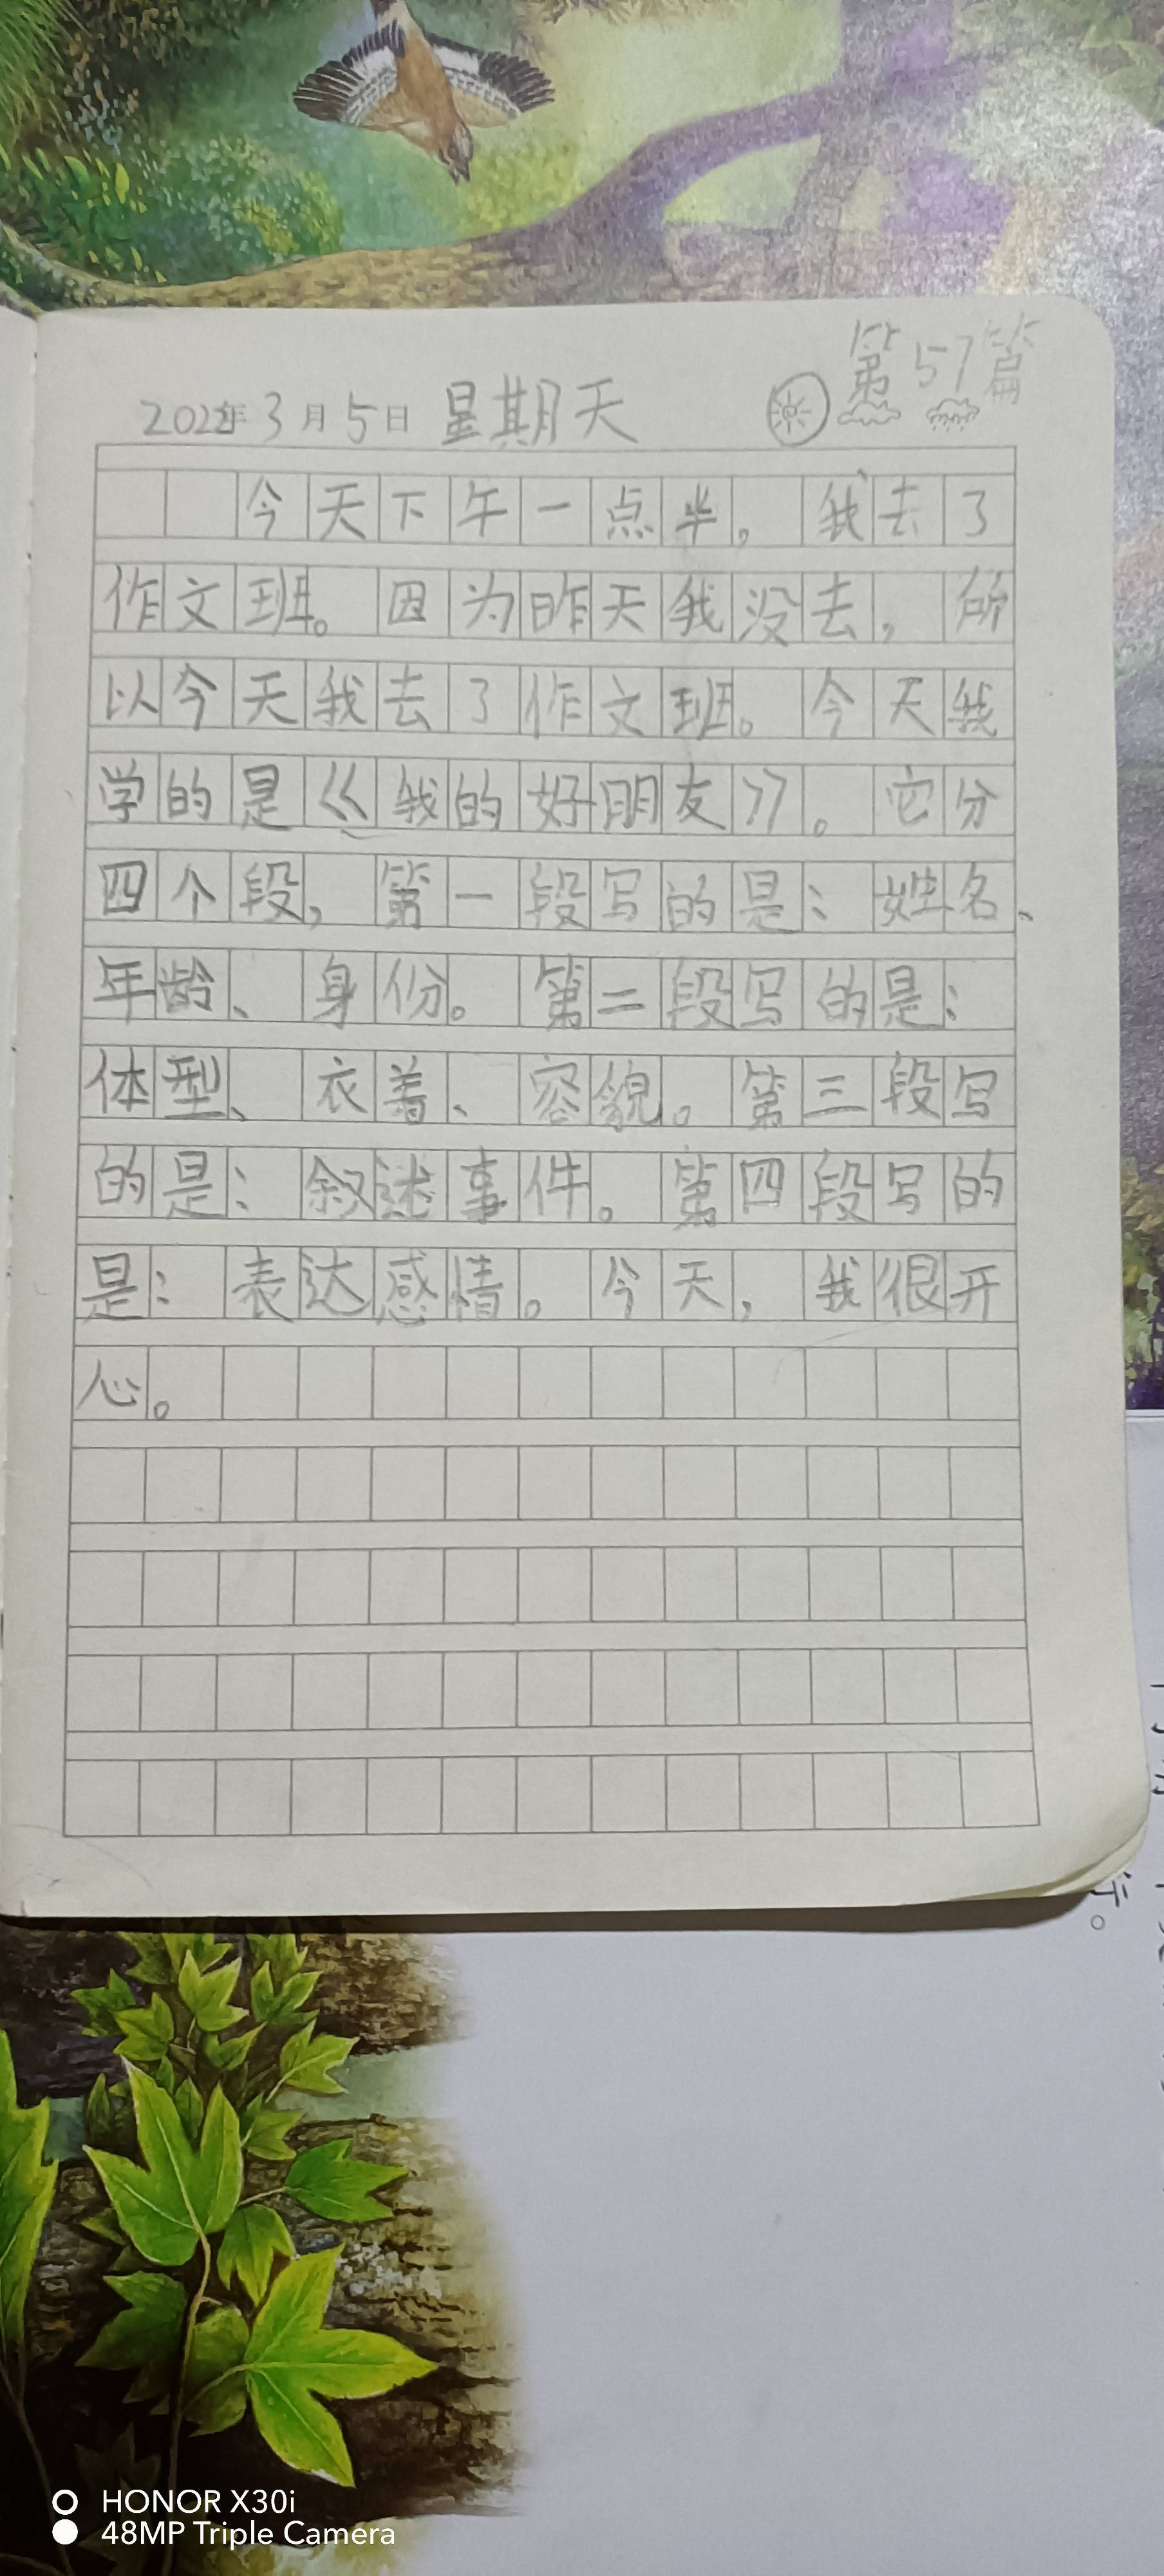 第57篇
2022年3月5日 星期天
今天下午一点半，我去了
作文班。因为昨天我没去，所
以今天我去了作文班。今天我
学的是《我的好朋友》。它分
四个段，第一段写的是：姓名、
年龄、身份。第二段写的是：
体型、衣着、容貌。第三段写
的是：叙述事件。第四段写的
是：表达感情。今天，我很开
心。
HONOR X30i
48MP Triple Camera